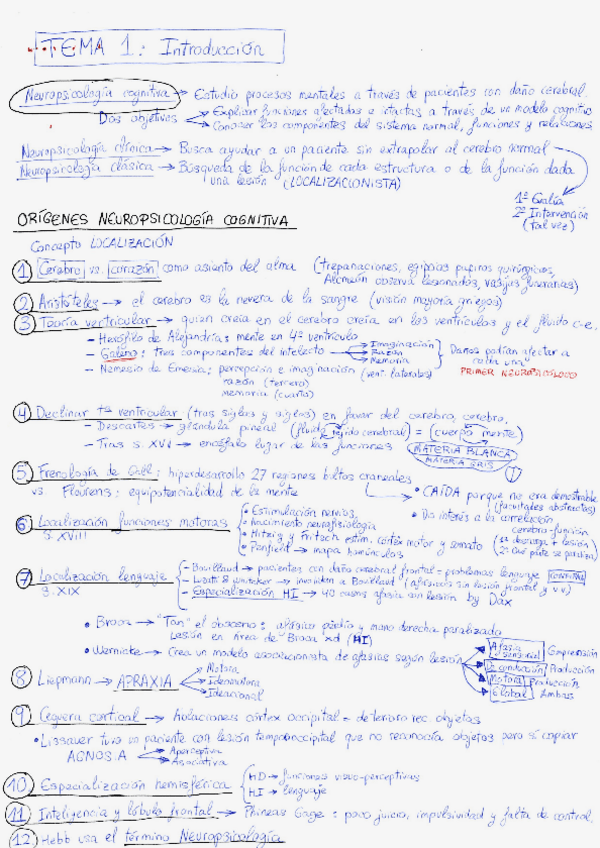 TEMA 1: Introducción
Neuropsicología cognitiva → Estudia procesos mentales a través de pacientes con daño cerebral.
Dos objetivos → Explicar funciones afectadas e intactas a través de un modelo cognitivo
→ Conocer los componentes del sistema normal, funciones y relaciones
Neuropsicología clínica → Busca ayudar a un paciente sin extrapolar al cerebro normal
Neuropsicología clásica → Búsqueda de la función de cada estructura o de la función dada
una lesión (LOCALIZACIONISTA)
1º Galia
2º Intervención
(tal vez)
ORÍGENES NEUROPSICOLOGÍA COGNITIVA
Concepto LOCALIZACIÓN
1 Cerebro vs. corazón como asiento del alma (trepanaciones, egipcios papiros quirúrgicos,
Alcmeón observa lesionados, vasijas funerarias)
2 Aristóteles → el cerebro es la nevera de la sangre (visión mayoría griegos)
3 Teoría ventricular → quien creía en el cerebro creía en los ventrículos y el fluido c-e.
- Herófilo de Alejandría: mente en 4º ventrículo
- Galeno: tres componentes del intelecto → Imaginación
→ Razón
→ Memoria
Daños podían afectar a
cada una
PRIMER NEUROPSICÓLOGO
- Nemesio de Emesia: percepción e imaginación (vent. laterales)
razón (tercero)
memoria (cuarto)
4 Declinar tª ventricular (tras siglos y siglos) en favor del cerebro, cerebro,
- Descartes → glándula pineal (fluido tejido cerebral) = (cuerpo mente)
- Tras s. XVI → encéfalo lugar de las funciones
MATERIA BLANCA
MATERIA GRIS
5 Frenología de Gall: hiperdesarrollo 27 regiones bultos craneales
vs Flourens: equipotencialidad de la mente
• CAÍDA porque no era demostrable
(facultades abstractas)
• Dio interés a la correlación
cerebro-función
(se descarga + lesión)
¿Qué parte se paraliza?
6 Localización funciones motoras
S. XVIII
• Estimulación nervios
• Nacimiento neurofisiología
• Hitzig y Fritsch estim. córtex motor y somato
• Penfield → mapa homúnculos
7 Localización lenguaje
S. XIX
- Bouillaud → pacientes con daño cerebral frontal = problemas lenguaje
→ invalidan a Bouillaud (afásicos sin lesión frontal y vv)
- Especialización HI → 40 casos afasia sin lesión by Dax
• Broca → "Tan" el obsceno: afásico pierde y mano derecha paralizada
Lesión en área de Broca (HI)
• Wernicke → Crea un modelo asociacionista de afasias según lesión
Afasia sensorial Comprensión
De conducción Producción
Motora Producción
Global Ambas
8 Liepmann → APRAXIA → Motora
→ Ideomotora
→ Ideacional
9 Ceguera cortical → Ablaciones córtex occipital = deterioro rec objetos
• Lissauer tuvo un paciente con lesión temporoccipital que no reconocía objetos pero sí copiar
AGNOSIA → Aperceptiva
→ Asociativa
10 Especialización hemisférica
HD → funciones visuo-perceptivas
HI → lenguaje
11 Inteligencia y lóbulo frontal → Phineas Gage: poco juicio, impulsividad y falta de control.
12 Hebb usa el término Neuropsicología